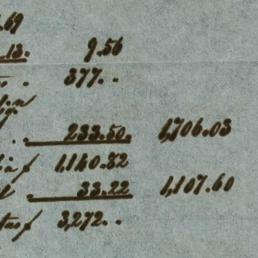 .69
13. 9.56
377..
233.50. 1,706.03
1.140.82
33.22 1,107.60
3,272..